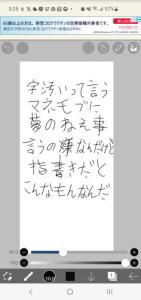 3:05
57%
65歳以上の方は、新型コロナワクチンの定期接種対象者です。
moderna
字汚いって言う
マネモブに
夢のねえ事
言うの嫌なんだけど
指書きだと
こんなもんなんだ
10.0
100
10.0